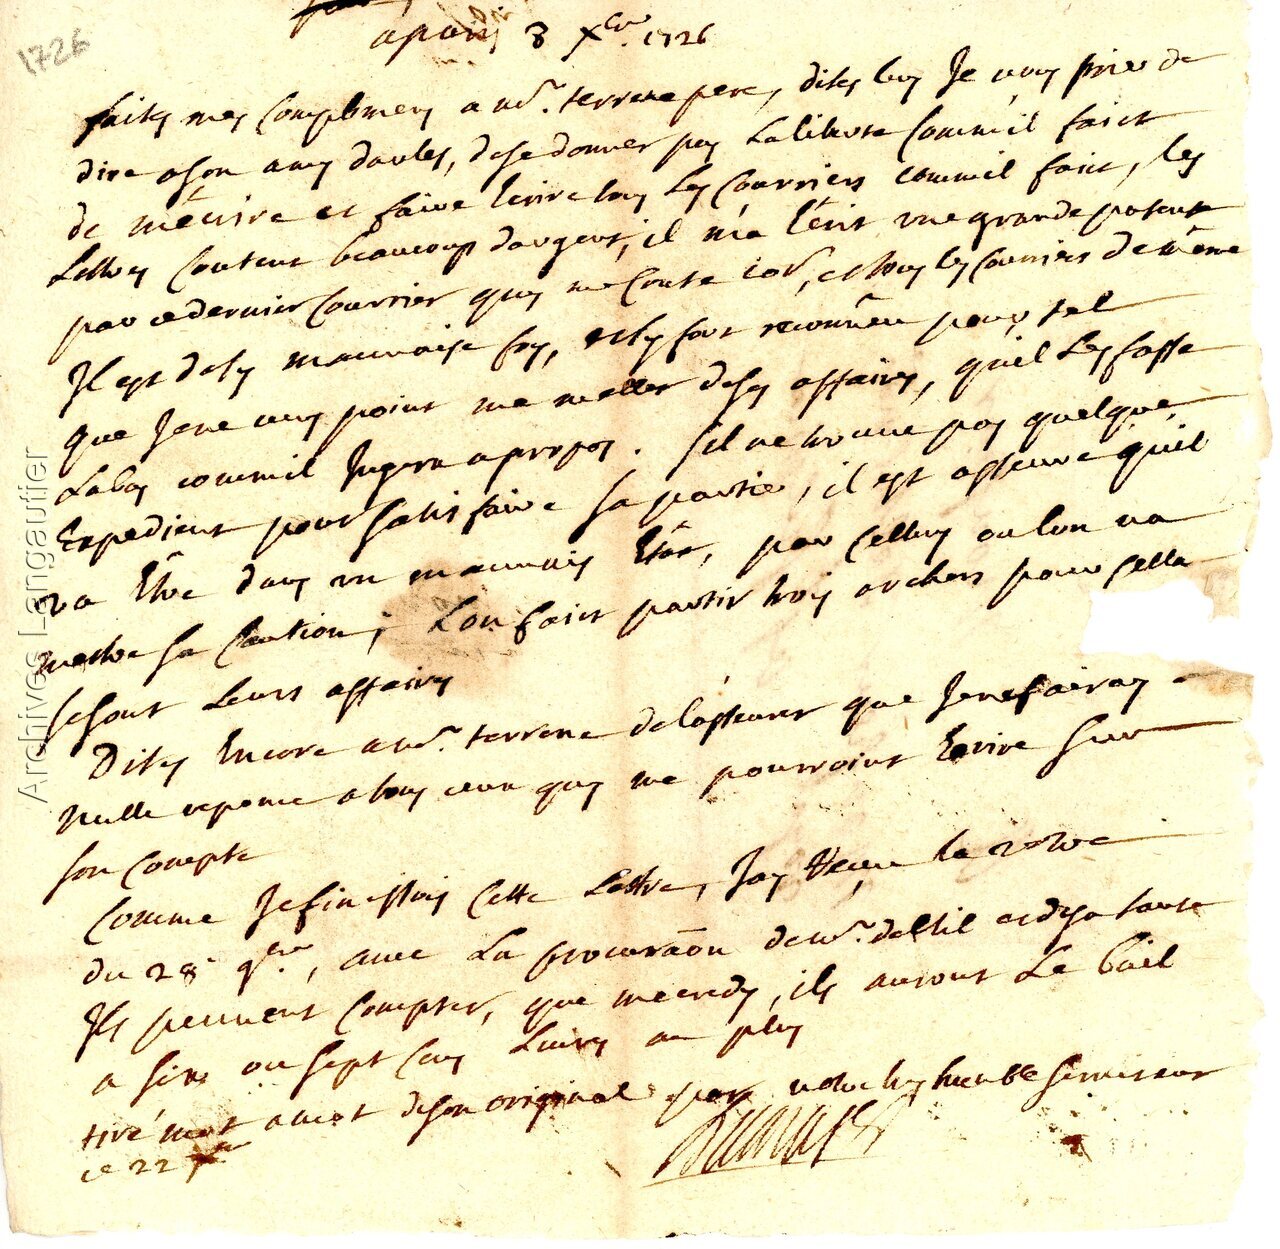 1726
a paris 8 Xbre. 1726
faites mes complimens a mr. terrene pere, dites luy Je vous prie de
dire a son amy daubes, de se donner pas la liberté comm'il faict
de m'écrire et faire Ecrire tous les Courriers comm'il faict, les
Lettres Coutent beaucoup d'argent, il m'a Ecrit une grande patente
par ce dernier Courrier quy me Coute 10s, et tous les Courriers de même
Il est de sy mauvaise foy, et sy fort reconneu pour tel
que Je ne veux point me mesler de ses affaires, qu'il les fasse
La bas comm'il Jugera a propos. s'il ne trouve pas quelque
Expedient pour satisfaire sa partie, il est asseuré qu'il
va Etre dans un mauvais Etat, par Celluy ou l'on va
mettre sa Caution; L'on faict partir trois archers pour Cella
se sont leurs affaires
Dites Encore a mr. terrene de l'asseurer que Je ne fairay
nulle reponce a tous ceux quy me pourroint Ecrire sur
son Compte
Comme Je finissois Cette Lettre, J'ay Receu la votre
du 28 9bre, avec La procuraõn de mr. deltil
Ils peuvent Compter, que mecredy, ils auront Le bail
a six ou sept Cens Livres au plus
tiré mot a mot de son original par votre tres humble serviteur
ce 22 Xbre
Archives Langautier